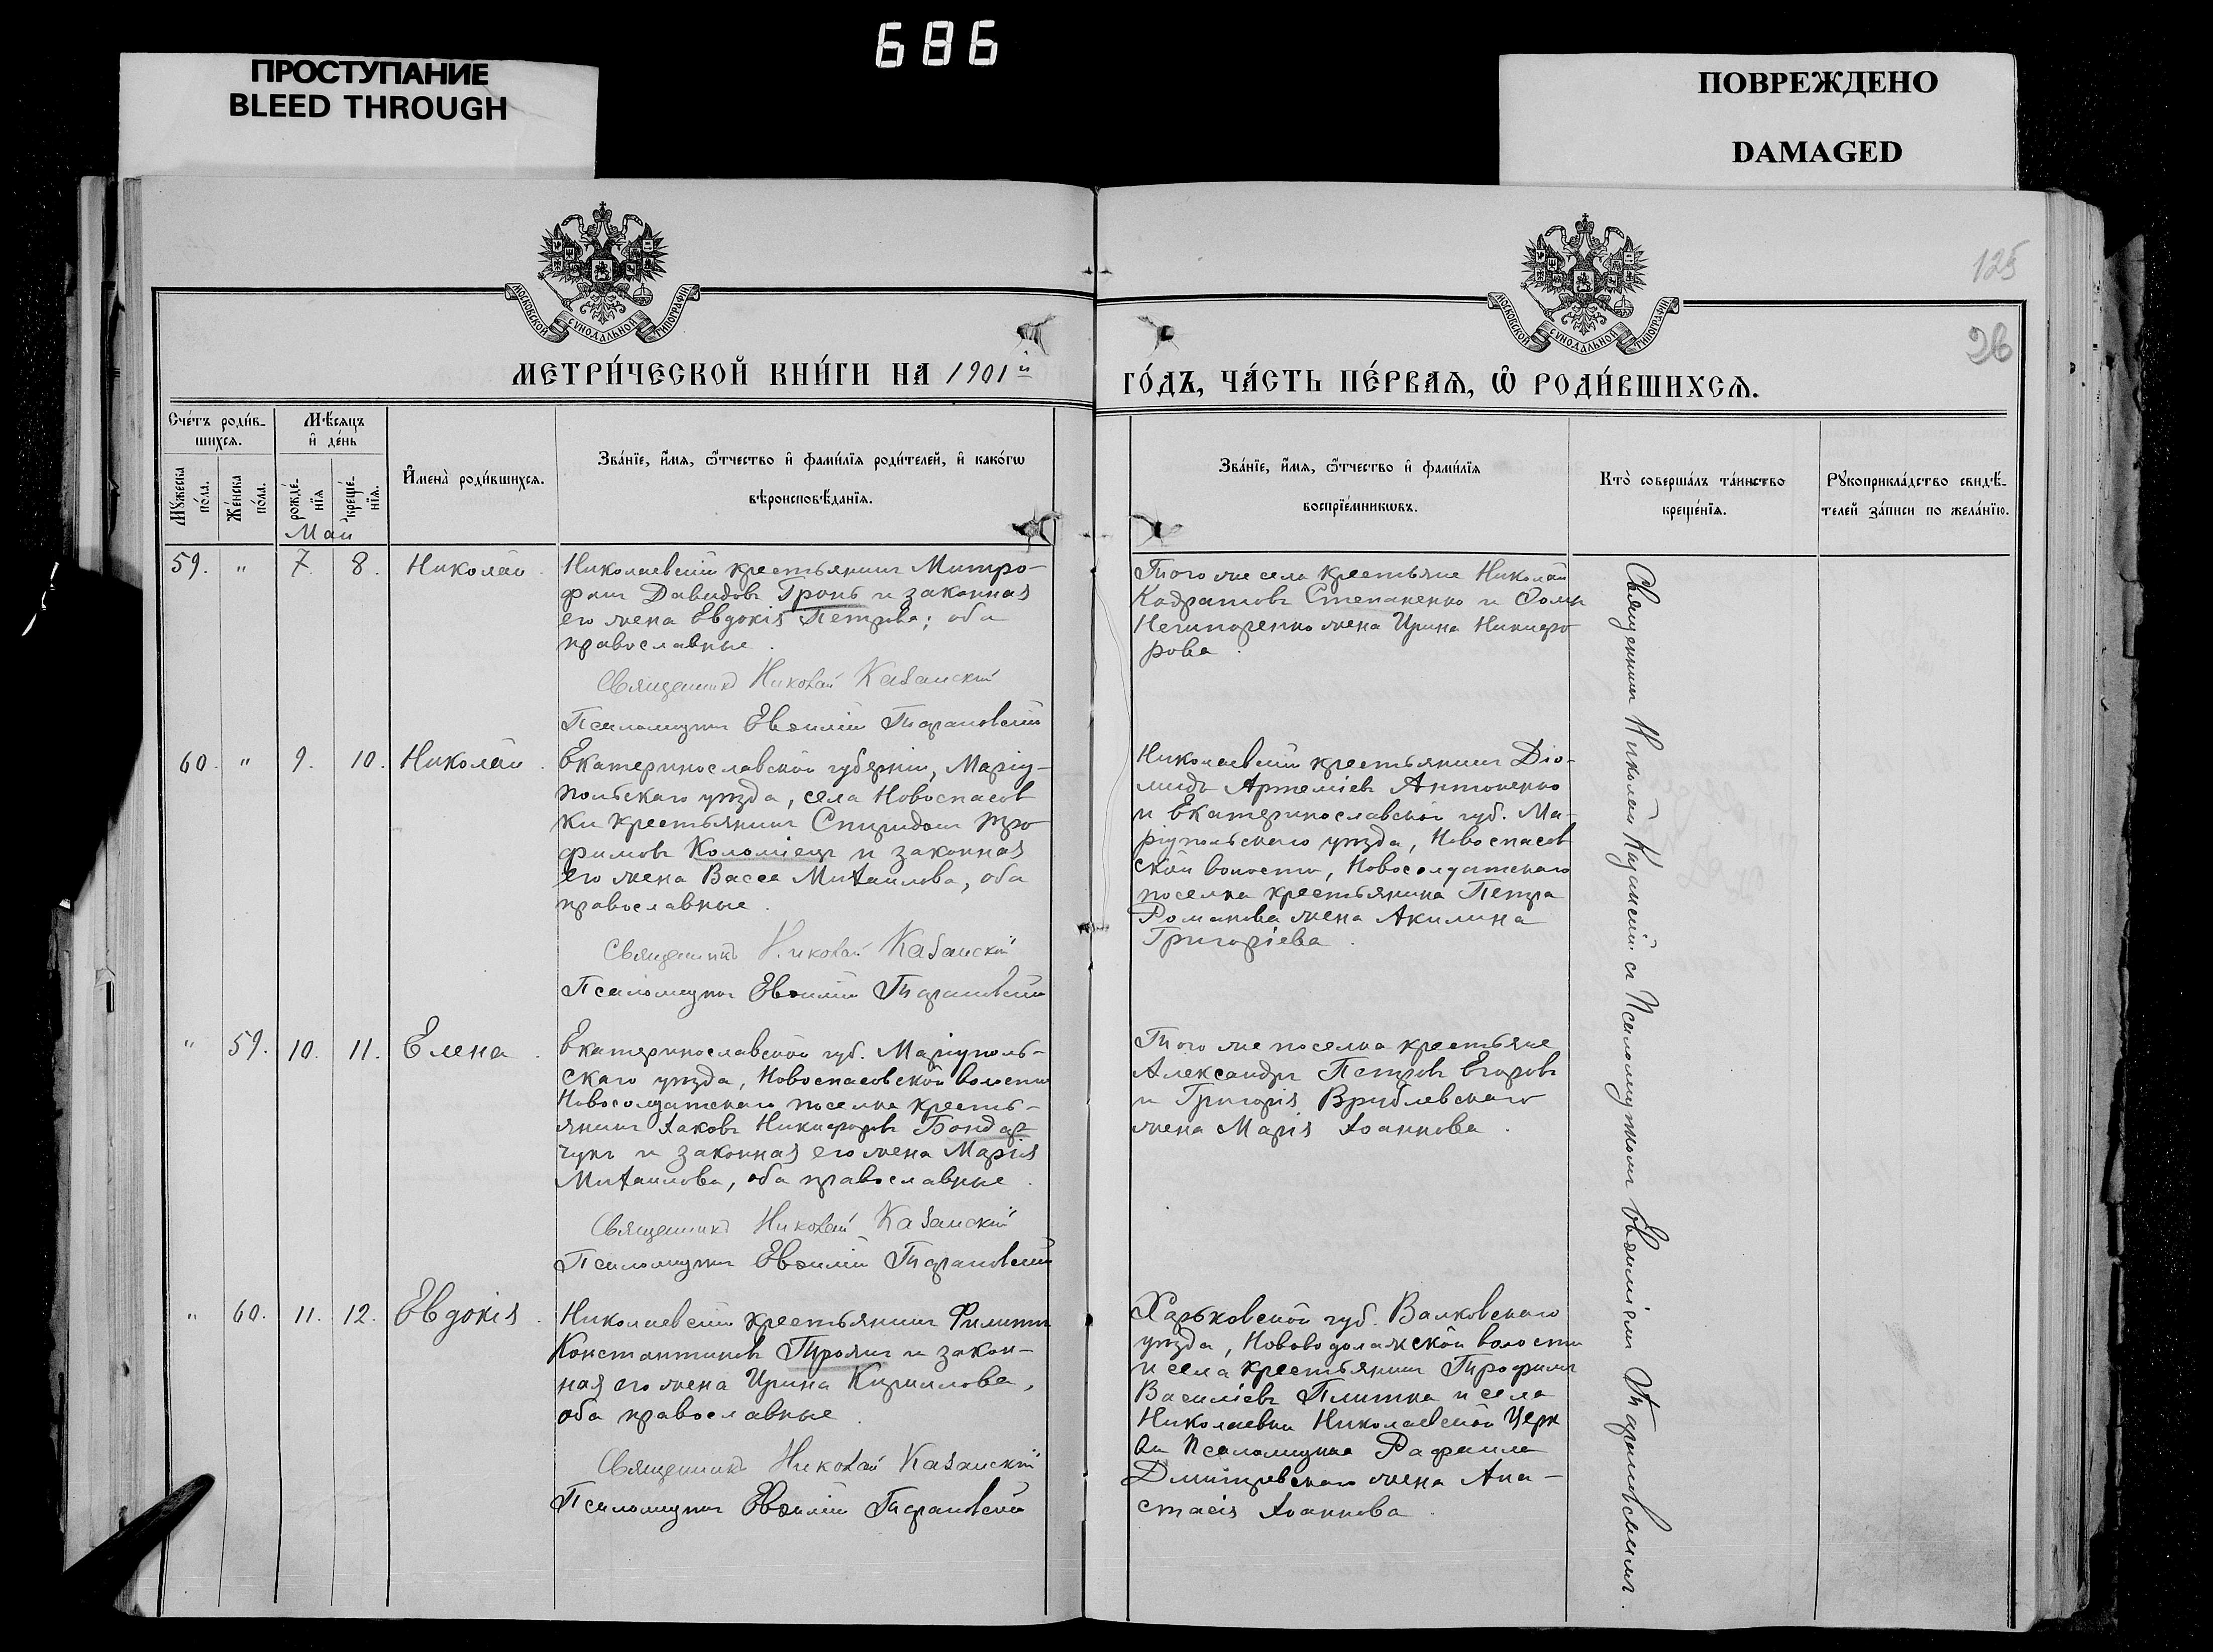 686
ПРОСТУПАНИЕ
BLEED THROUGH
ПОВРЕЖДЕНО
DAMAGED
125
26
МОСКОВСКОЙ СѴНОДАЛЬНОЙ ТИПОГРАФІИ
МОСКОВСКОЙ СѴНОДАЛЬНОЙ ТИПОГРАФІИ
МЕТРИ́ЧЕСКОЙ КНИ́ГИ НА 1901й
ГО́ДЪ, ЧА́СТЬ ПЕ́РВАѦ, Ѿ РОДИ́ВШИХСѦ.
Сче́тъ роди́в-
шихсѧ.
Мꙋжеска
по́ла.
Же́нска
по́ла.
Мѣ́сѧцъ
и҆ де́нь
рожде́-
нїѧ
креще́-
нїѧ.
Мaй
И҆мена̀ роди́вшихсѧ.
Зва́нїе, и҆́мѧ, ѻ҆́тчество и҆ фами́лїѧ роди́телей, и҆ како́гѡ
вѣроисповѣ́данїѧ.
Зва́нїе, и҆́мѧ, ѻ҆́тчество и҆ фами́лїѧ
воспрїе́мникѡвъ.
Кто̀ соверша́лъ та́инство
креще́нїѧ.
Рꙋкоприкла́дство свидѣ́-
телей за́писи по жела́нїю.
59. " 7. 8. Николай.
Николаевскій крестьянинъ Митро-
фанъ Давидовъ Гронь и законная
его жена Евдокія Петрова; оба
православные.
Священникъ Николай Казанскій
Псаломщикъ Евѳимій Тарановскій
Того же села крестьяне Николай
Кодратовъ Степаненко и Ѳомы
Нечипоренко жена Ирина Никифо-
рова.
60. " 9. 10. Николай.
Екатеринославской губерніи, Маріу-
польскаго уѣзда, села Новоспасов
ки крестьянинъ Спиридонъ Тро
фимовъ Коломіецъ и законная
его жена Васса Михаилова, оба
православные.
Священникъ Николай Казанскій
Псаломщикъ Евѳимій Тарановскій
Николаевскій крестьянинъ Діо-
мидъ Артеміевъ Антоненко
и Екатеринославской губ. Ма-
ріупольскаго уѣзда, Новоспасов
ской волости, Новосолдатскаго
поселка крестьянина Петра
Романова жена Акилина
Григоріева.
" 59. 10. 11. Елена.
Екатеринославской губ. Маріуполь-
скаго уѣзда, Новоспасовской волости
Новосолдатскаго поселка кресть-
янинъ Іаковъ Никифоровъ Бондар-
чукъ и законная его жена Марія
Михаилова, оба православные.
Священникъ Николай Казанскій
Псаломщикъ Евѳимій Тарановскій
Того же поселка крестьяне
Александръ Петровъ Егоровъ
и Григорія Врублевскаго
жена Марія Іоаннова.
" 60. 11. 12. Евдокія.
Николаевскій крестьянинъ Филиппъ
Константиновъ Троянъ и закон-
ная его жена Ирина Кириллова,
оба православные.
Священникъ Николай Казанскій
Псаломщикъ Евѳимій Тарановскій
Харьковской губ. Валковскаго
уѣзда, Нововодолажской волости
и села крестьянинъ Трофимъ
Василіевъ Плитка и села
Николаевки Николаевской Церк
ви Псаломщика Рафаила
Дмитревскаго жена Ана-
стасія Іоаннова.
Священникъ Николай Казанскій съ Псаломщикомъ Евѳиміемъ Тарановскимъ.